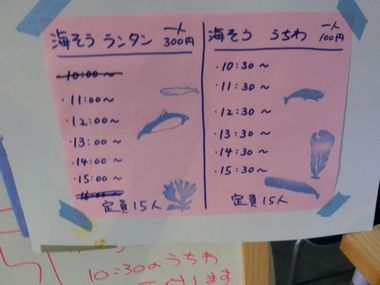 海そう ランタン 一人300円
10:00～
・11:00～
・12:00～
・13:00～
・14:00～
・15:00～
定員15人
海そう うちわ 一人100円
・10:30～
・11:30～
・12:30～
・13:30～
・14:30～
・15:30～
定員15人
10:30のうちわ
します